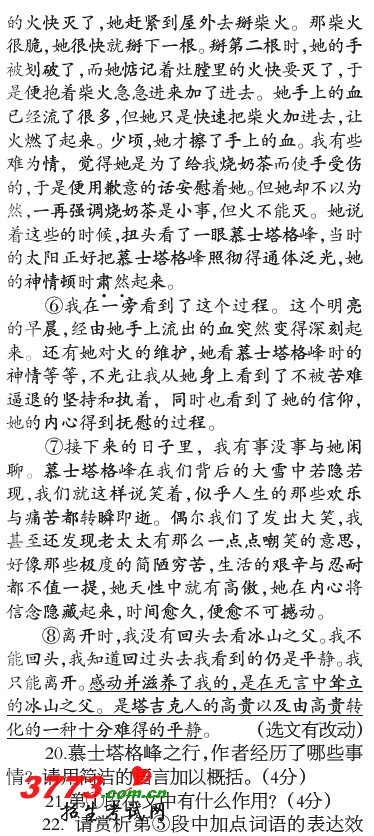 的火快灭了，她赶紧到屋外去掰柴火。那柴火
很脆，她很快就掰下一根。掰第二根时，她的手
被划破了，而她惦记着灶膛里的火快要灭了，于
是便抱着柴火急急进来加了进去。她手上的血
已经流了很多，但她只是快速把柴火加进去，让
火燃了起来。少顷，她才擦了手上的血。我有些
难为情，觉得她是为了给我烧奶茶而使手受伤
的，于是便用歉意的话安慰着她。但她却不以为
然，一再强调烧奶茶是小事，但火不能灭。她说
着这些的时候，扭头看了一眼慕士塔格峰，当时
的太阳正好把慕士塔格峰照彻得通体泛光，她
的神情顿时肃然起来。
⑥我在一旁看到了这个过程。这个明亮
的早晨，经由她手上流出的血突然变得深刻起
来。还有她对火的维护，她看慕士塔格峰时的
神情等等，不光让我从她身上看到了不被苦难
逼退的坚持和执着，同时也看到了她的信仰，
她的内心得到抚慰的过程。
⑦接下来的日子里，我有事没事与她闲
聊。慕士塔格峰在我们背后的大雪中若隐若
现，我们就这样说笑着，似乎人生的那些欢乐
与痛苦都转瞬即逝。偶尔我们了发出大笑，我
甚至还发现老太太有那么一点点嘲笑的意思，
好像那些极度的简陋穷苦，生活的艰辛与忍耐
都不值一提，她天性中就有高傲，她在内心将
信念隐藏起来，时间愈久，便愈不可撼动。
⑧离开时，我没有回头去看冰山之父。我不
能回头，我知道回过头去我看到的仍是平静。我
只能离开。感动并滋养了我的，是在无言中耸立
的冰山之父。是塔吉克人的高贵以及由高贵转
化的一种十分难得的平静。 （选文有改动）
20.慕士塔格峰之行，作者经历了哪些事
情？请用简洁的语言加以概括。（4分）
21.第①段在文中有什么作用？（4分）
22. 请赏析第③段中加点词语的表达效
3773.com.cn
招生考试网